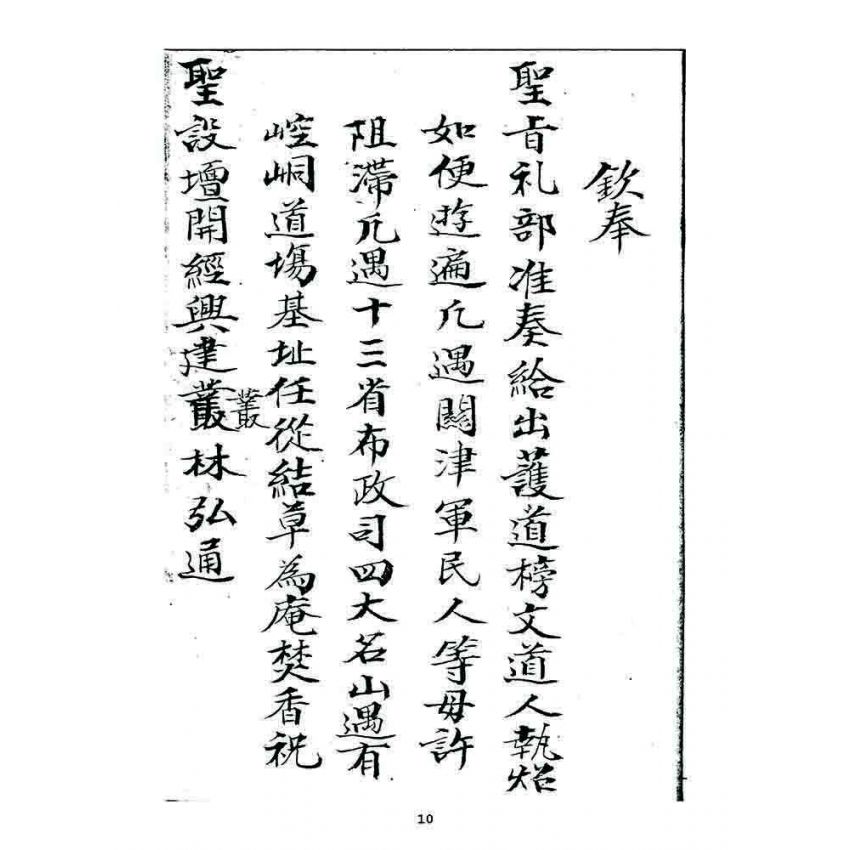 欽奉
聖旨礼部准奏給出護道榜文道人執炤
如便遊遍凡遇關津軍民人等毋許
阻滯凡遇十三省布政司四大名山遇有
崆峒道塲基址任從結草為庵焚香祝
聖設壇開經興建叢林弘通
叢
10